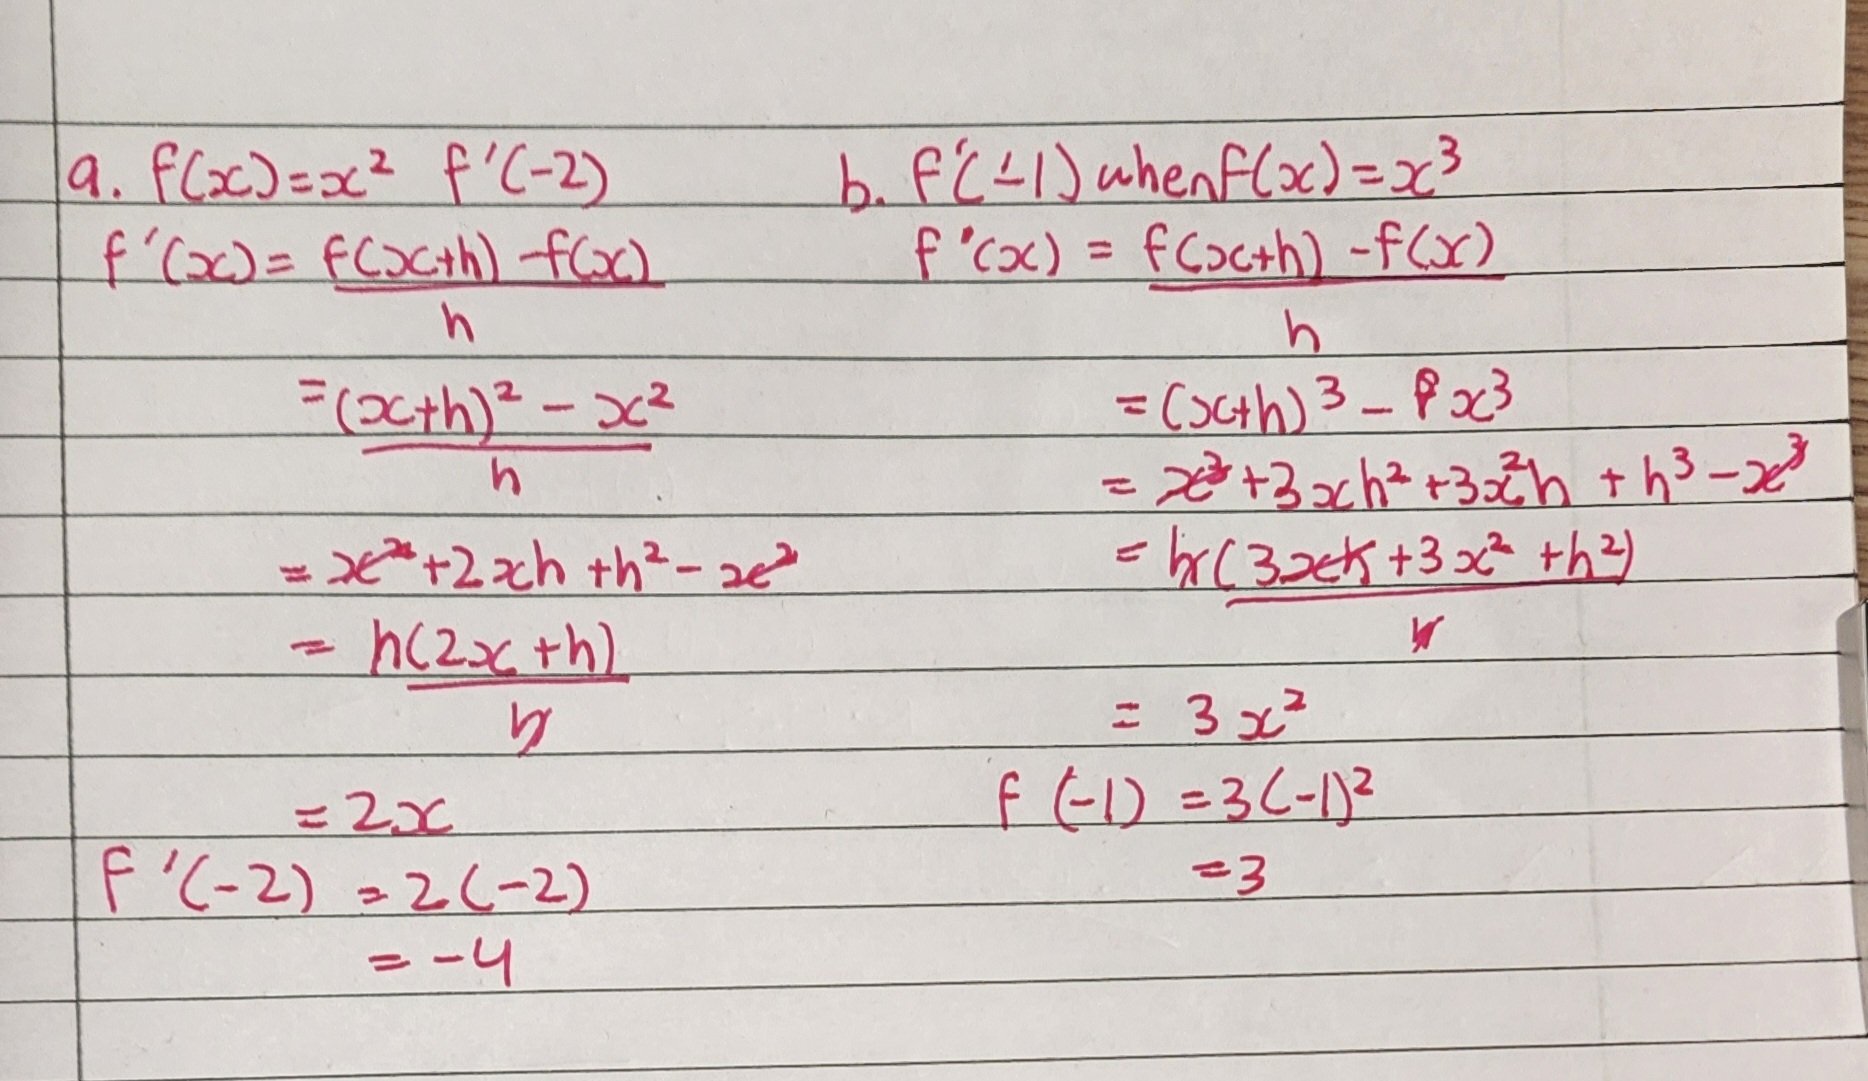 a. f(x)=x² f'(-2)
f'(x)= f(x+h) -f(x)
h
=(x+h)² - x²
h
= x²+2xh+h²-x²
= h(2x+h)
h
=2x
f'(-2) =2(-2)
= -4
b. f'(-1) when f(x)=x³
f'(x) = f(x+h) -f(x)
h
=(x+h)³- x³
= x³+3xh²+3x²h+h³-x³
= h(3xh+3x²+h²)
h
= 3x²
f(-1) =3(-1)²
=3